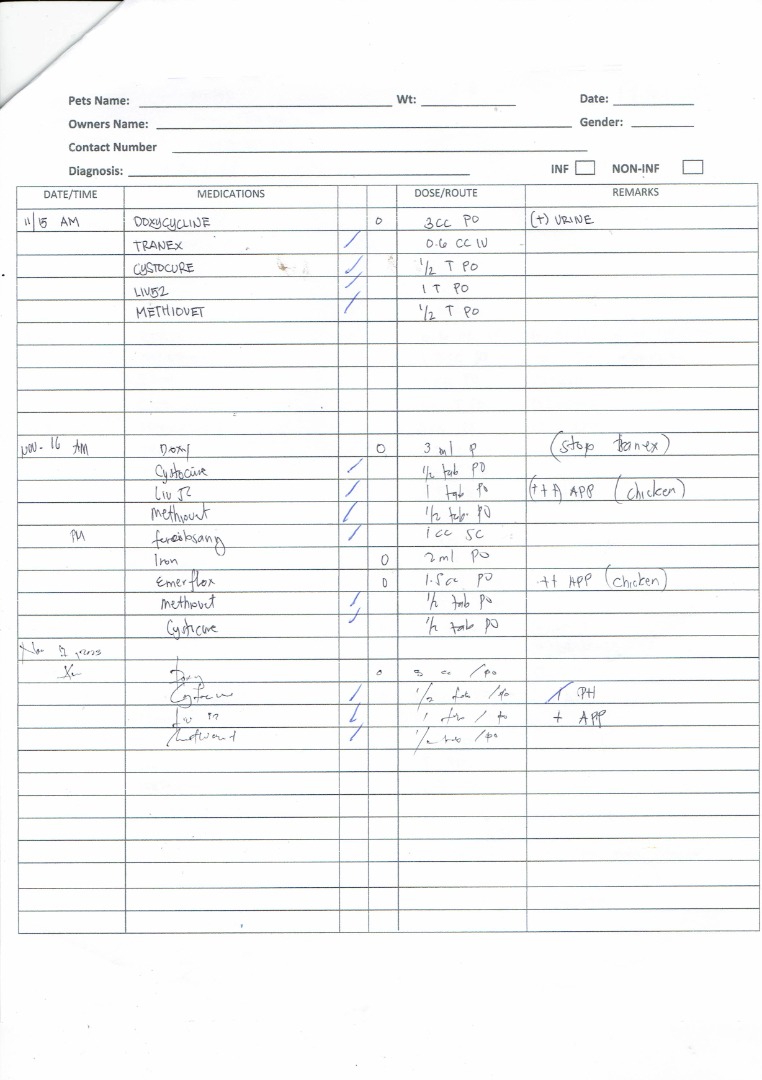 Pets Name: Wt: Date:
Owners Name: Gender:
Contact Number
Diagnosis: INF NON-INF
DATE/TIME MEDICATIONS DOSE/ROUTE REMARKS
11/15 AM DOXYCYCLINE O 3cc PO (+) URINE
TRANEX / 0.6 CC IV
CYSTOCURE / 1/2 T PO
LIV52 / 1 T PO
METHIOVET / 1/2 T PO
Nov. 16 AM Doxy O 3 ml P (stop tranex)
Cystocure / 1/2 tab PO
Liv 52 / 1 tab PO (+++) APP (chicken)
Methiovet / 1/2 tab. PO
PM / 1 cc SC
Iron O 2ml PO
Emerflox O 1.5cc PO ++ APP (chicken)
Methiovet / 1/2 tab PO
Cysticure / 1/2 tab PO
Nov
O cc /po
/ 1/2 /po PH
/ 1 + APP
/ tab /po